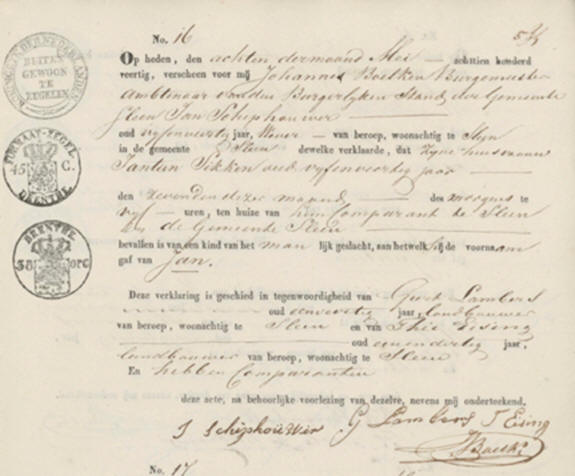 No. 16
BUITEN
GEWOON
TE
ZEGELEN
Op heden, den achsten dermaand Mei — achttien honderd
veertig, verscheen voor mij Johannes Boelken Burgemeester
ambtenaar vanden Burgerlyken Stand, der Gemeente
Sleen Jan Schiphouwer
oud vyfenveertig jaar, Wever — van beroep, woonachtig te Sleen
in de gemeente Sleen dewelke verklaarde, dat Zyne huisvrouw
Jantien Sikken oud vyfenveertig jaar
FORMAAT-ZEGEL
45 C.
DRENTHE
den zevenden dezer maand — des morgens te
vyf — uren, ten huize van hem Comparant te Sleen
in de Gemeente Sleen
DRENTHE
38 OPC
bevallen is van een kind van het man lijk geslacht, aan hetwelk hij de voornaam
gaf van Jan.
Deze verklaring is geschied in tegenwoordigheid van Geert Lambers
oud eenveertig jaar, landbouwer
van beroep, woonachtig te Sleen en van Thie Eising
oud eenendertig jaar,
landbouwer van beroep, woonachtig te Sleen
En hebben Comparanten
deze acte, na behoorlijke voorlezing van dezelve, nevens mij onderteekend.
J Schiphouwer G Lambers T Eising
No. 17